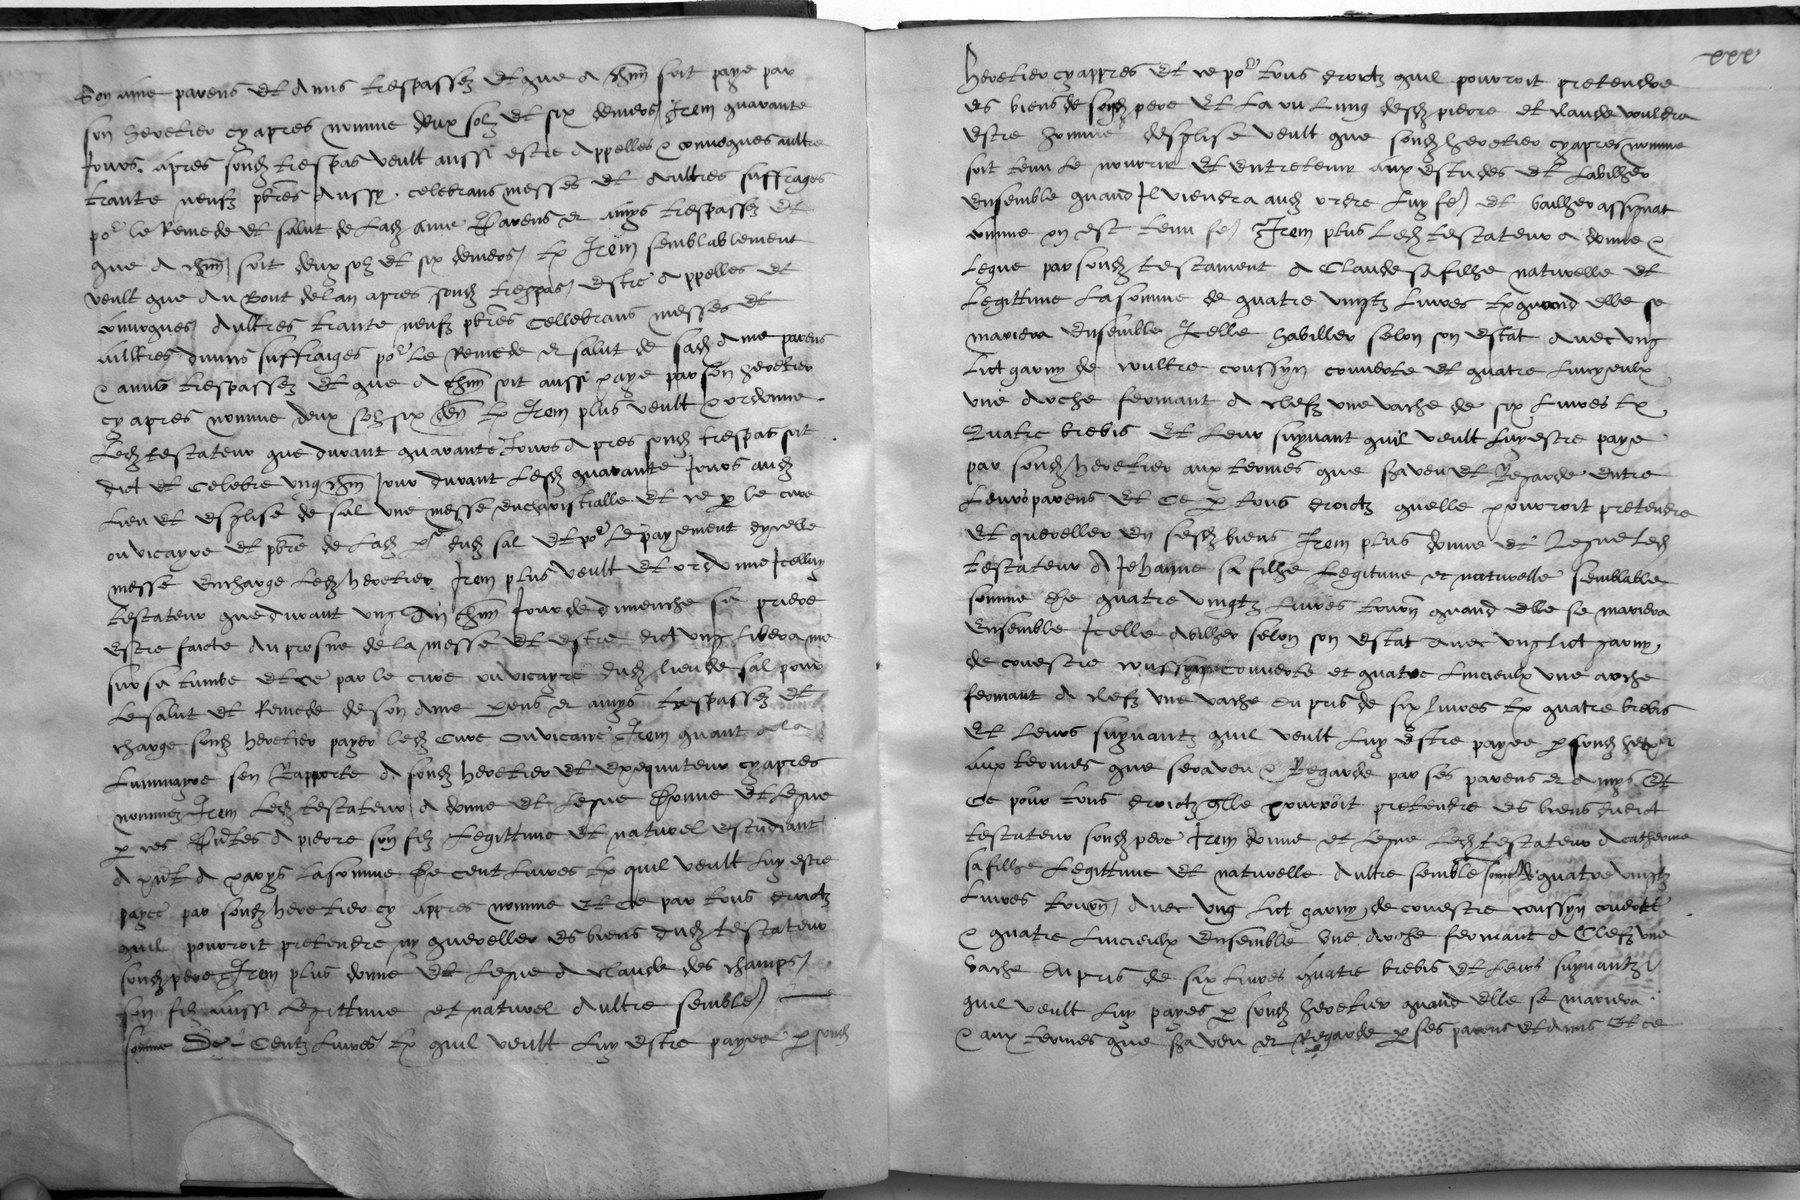 son ame parens et amys trespassez et que a chm soit paye par
son heretier cy apres nomme deux solz et six deniers Item quarante
Jours apres sondz trespas veult aussi estre appelles & convoques aultre
trante neufz pbres aussy celebrans messes et aultres suffrages
por le Remede et salut de ladz ame Parens et amys trespassez et
que a chm soit deux solz et six deniers tz Item semblablement
veult que au bout de lan apres sondz trespas estre appelles et
convoques aultres trante neufz pbres cellebrans messes et
aultres divins suffraiges por le Remede et salut de sadz ame parens
& amis trespassez et que a chm soit aussi paye par son heretier
cy apres nomme deux solz six den tz Item plus veult & ordonne
ledz testateur que durant quarante Jours apres sondz trespas soit
dict et celebre ung chm Jour durant lesdz quarante Jours audz
lieu et esglise de sal une messe eucharistialle et ce p le cure
ou vicayre et pbre de ladz dudz sal et por le payement dycelle
messe encharge ledz heretier Item plus veult et ordonne Icelluy
testateur que durant ung an chm Jour de dimenche sa priere
estre faicte au prosne de la messe et estre dict ung libera me
sur sa tumbe et ce par le cure ou vicayre dudz lieu de sal pour
le salut et Remede de son ame pens et amys trespassez et
charge sondz heretier payer ledz cure ou vicaire Item quant a la
luminayre sen Rapporte a sondz heretier et exequuteur cy apres
nommez Item ledz testateur a donne et legue donne et legue
p ces pntes a pierre son filz legittime et naturel estudiant
a pnt a parys la somme de cent livres tz quil veult luy estre
payee par sondz heretier cy appres nomme et ce par tous droictz
quil pourroit pretendre ny quereller es biens dudz testateur
sondz pere Item plus donne et legue a claude des champs
son filz aussi legittime et naturel aultre semble
somme de centz livres tz quil veult luy estre payee p sondz
xxx
heretier cy appres et ce por tous droictz quil pourroit pretendre
es biens de sondz pere et la ou lung desdz pierre et claude vouldra
estre homme desglise veult que sondz heretier cy apres nomme
soit tenu le nourrir et entretenir aux estudes et labilher
ensemble quand Il viendra audz ordre luy fe et bailher assignat
comme on est tenu fe Item plus ledz testateur a donne &
legue par sondz testament a Claude sa filhe naturelle et
legittime la somme de quatre vingtz livres tz quand elle se
mariera ensemble Icelle habiller selon son estat avec ung
lict garny de coultre coussyn couverte et quatre lincyeulx
une arche fermant a clefz une vache de six livres tz
Quatre brebis et leur suyvant quil veult luy estre paye
par sondz heretier aux termes que sera veu et Regarde entre
leurs parens et ce p tous droictz quelle pourroit pretendre
et quereller en sesdz biens Item plus donne et legue ledz
testateur a Jehanne sa filhe legitime et naturelle semblable
somme de quatre vingtz livres tourn quand elle se mariera
Ensemble Icelle abilher selon son estat avec ung lict garny
de couestre coussyn couverte et quatre lincieulx une arche
fermant a clefz une vache du pris de six livres tz quatre brebis
et leurs suyvantz quil veult luy estre payee p sondz heter
aux termes que sera veu & Regarde par ses parens et amys et
ce pour tous droictz qlle pourroit pretendre es biens dudict
testateur sondz pere Item donne et legue ledz testateur a catherine
sa filhe legittime et naturelle aultre semble some de quatre vingtz
livres tourn avec ung lict garny de couestre coussyn couverte
& quatre lincieulx ensemble une arche fermant a clefz une
vache du pris de six livres quatre brebis et leurs suyvantz
quil veult luy payes p sondz heretier quand elle se mariera
& aux termes que sera veu et Regarde p ses parens et amis et ce